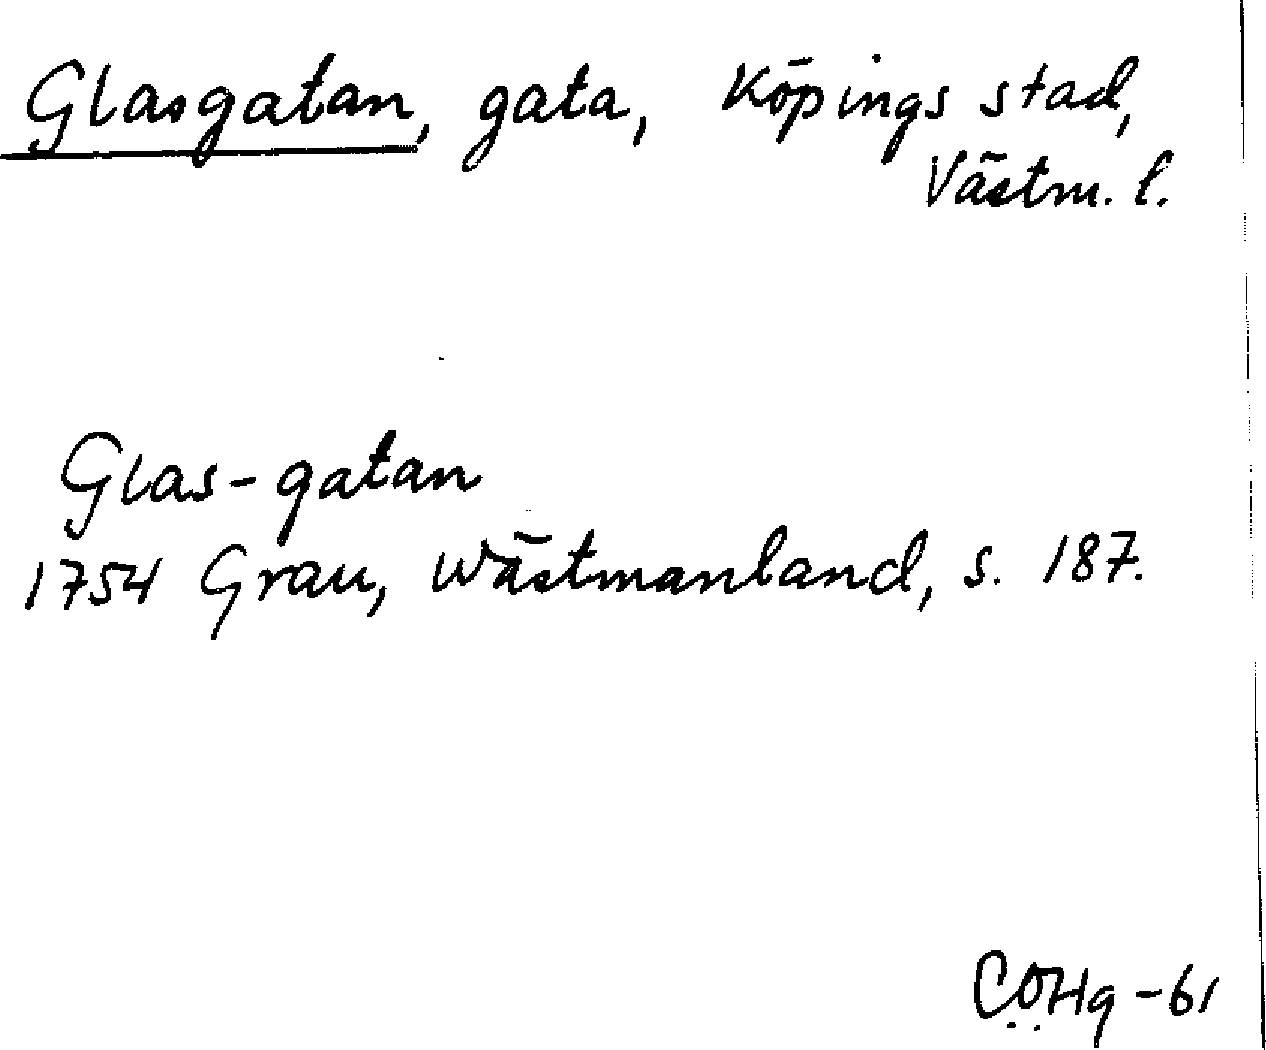 Glasgatan, gata, Köpings stad,
Västm. l.
Glas-gatan
1754 Grau, Wästmanland, s. 187.
COHg -61